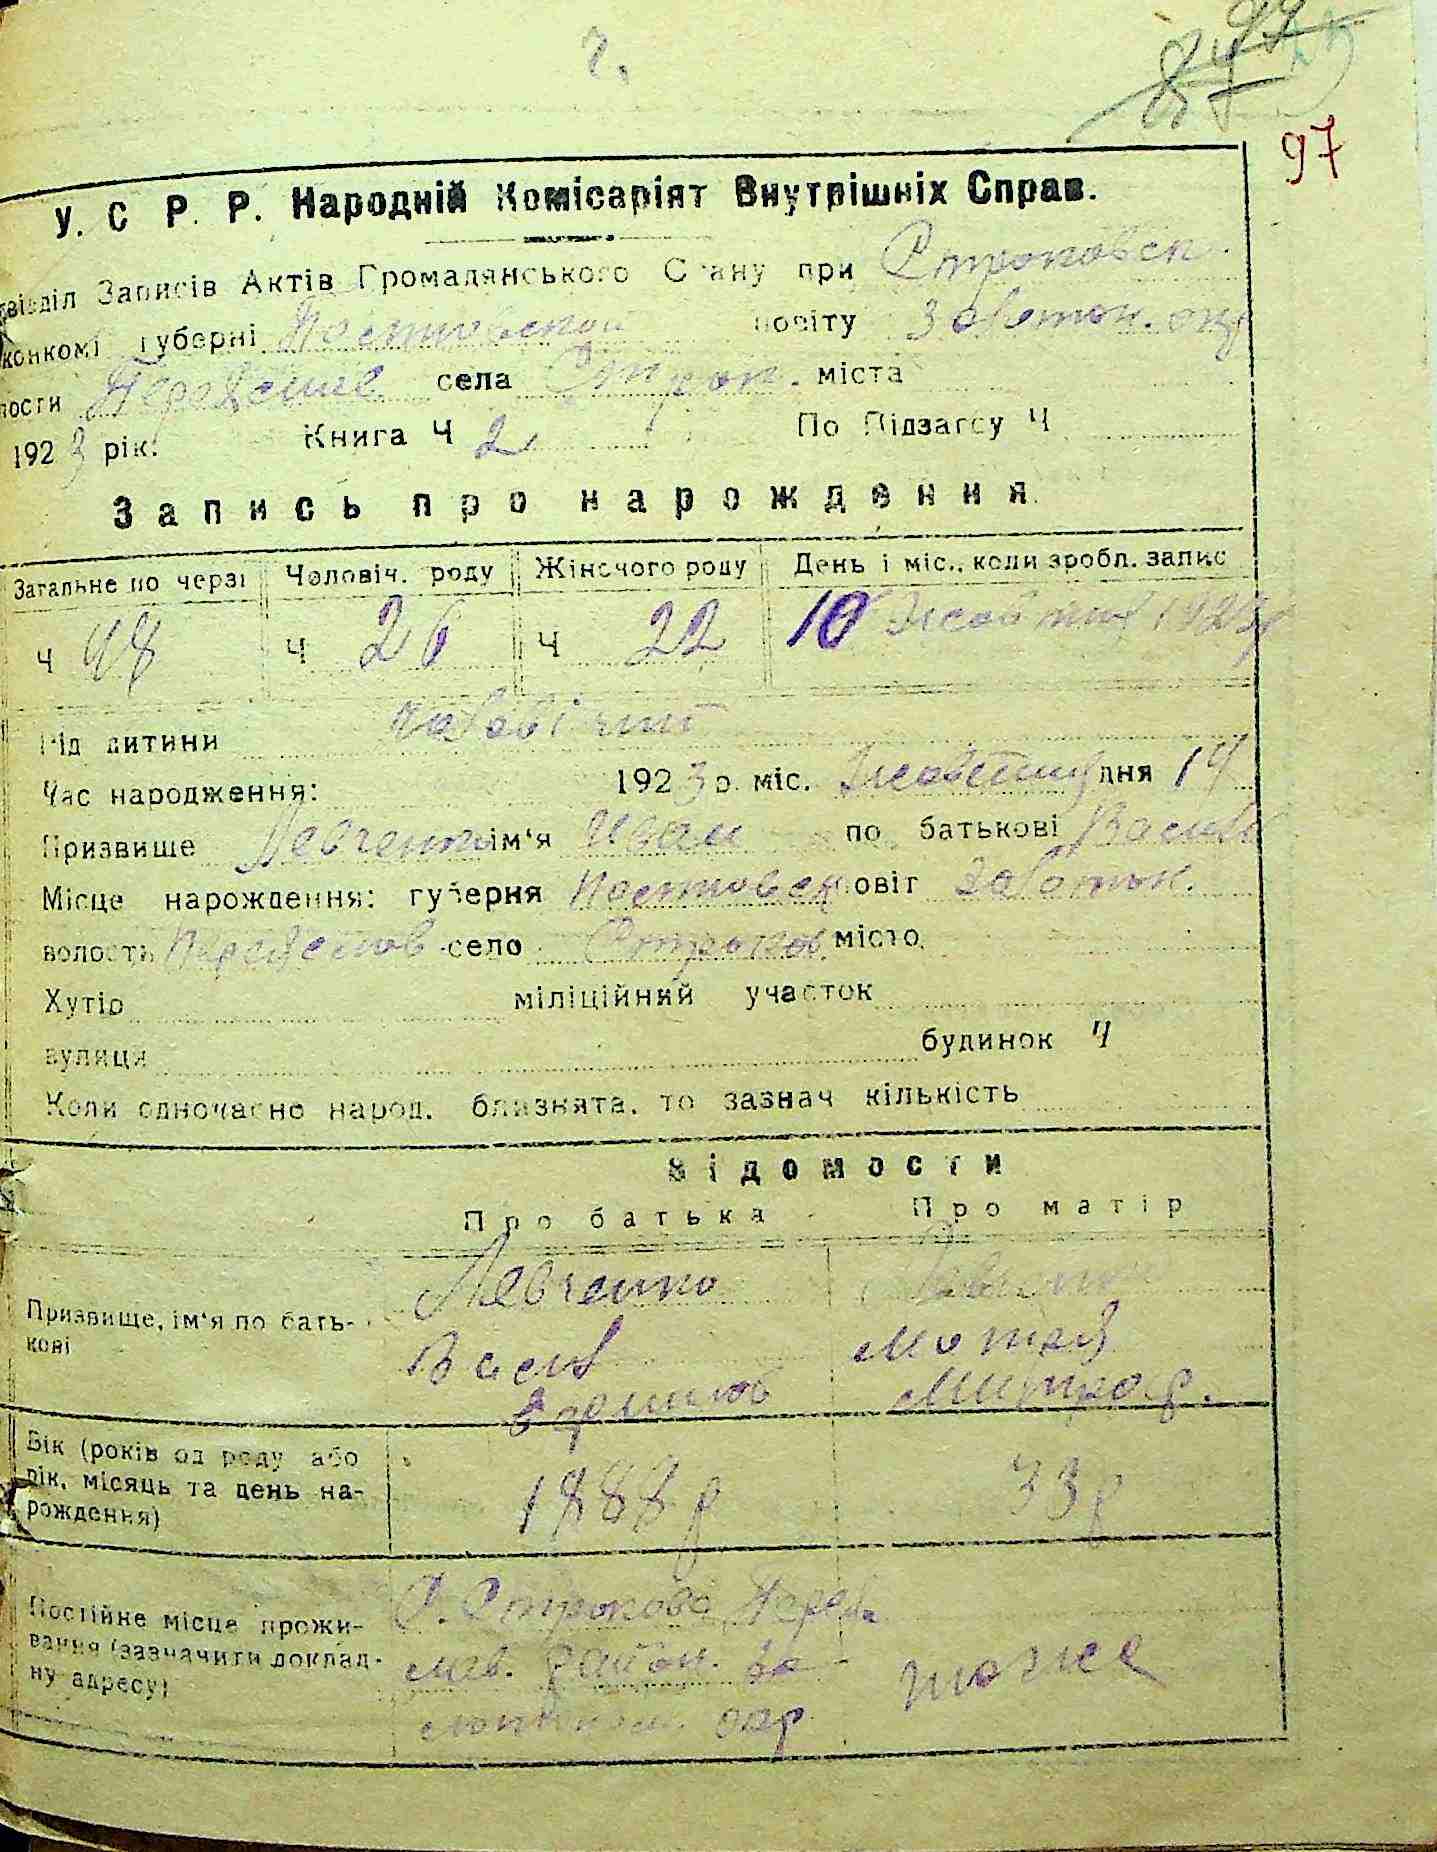 97
У. С Р. Р. Народній Комісаріят Внутрішніх Справ.
Записів Актів Громадянського Стану при Строковск.
конкомі губерні Полтовской повіту Золотон. окр
лости села Строк. міста
1923 рік. Книга Ч 2 По Підзагсу Ч
Запись про нарождення
Загальне по черзі Человіч. роду Жіночого роду День і міс., коли зробл. запис
Ч 48 Ч 26 Ч 22 10
Рід дитини
Час народження: 1923 р. міс. дня 14
Призвище Левченко ім'я Иван по батькові Васил
Місце нарождення: губерня Полтовск повіт Золотон.
волость село Строков місто
Хутір міліційний участок
вулиця будинок Ч
Коли одночасно народ. близнята, то зазнач кількість
Відомости
Про батька Про матір
Призвище, ім'я по бать- Левченко Левченко
кові Васил Мотря
Митроф.
Вік (років од роду або
рік, місяць та день на- 1888 р 33 р
рождення)
Постійне місце прожи- С. Строкова Перея
вання (зазначити доклад- слав. район. Зо-
ну адресу) окр тоже